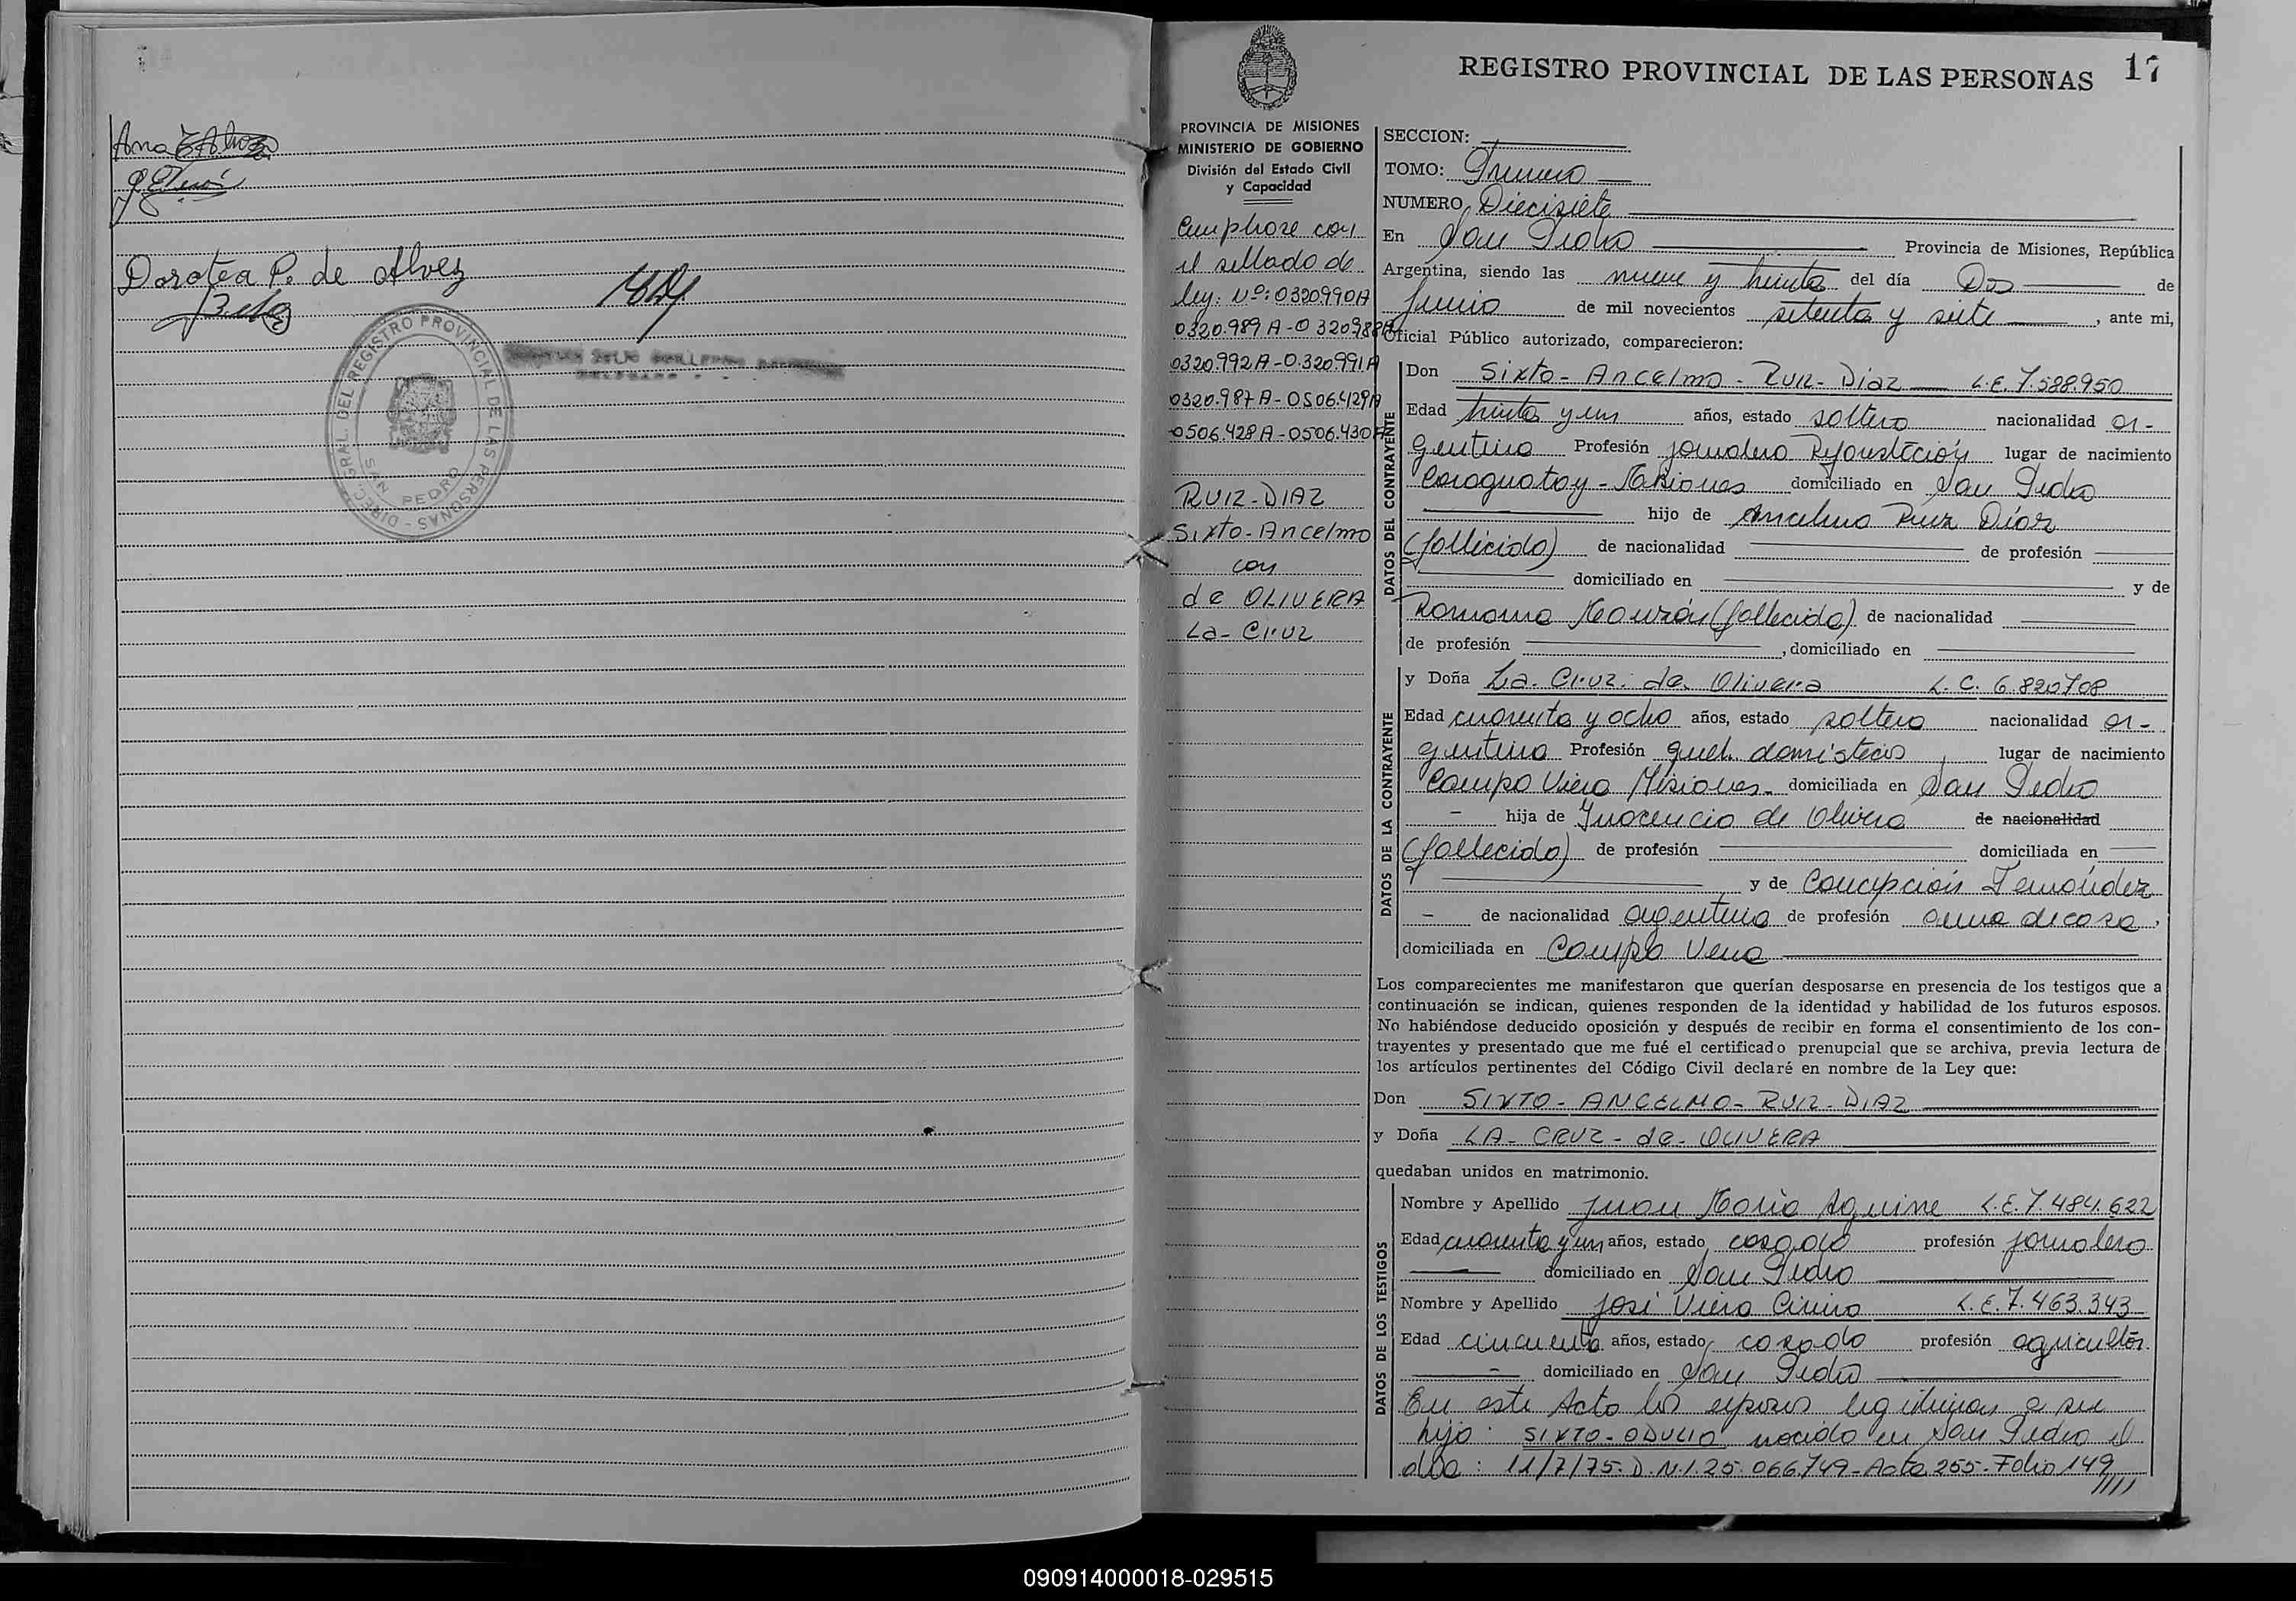 Ana
Dorotea P. de Alvez
DIREC. GRAL. DEL REGISTRO PROVINCIAL DE LAS PERSONAS -
SAN PEDRO
REGISTRO PROVINCIAL DE LAS PERSONAS 17
PROVINCIA DE MISIONES
MINISTERIO DE GOBIERNO
División del Estado Civil
y Capacidad
Cumplase con
el sellado de
ley: Nº: 0320990A
0320.989 A - 0320988A
0320.992 A - 0.320.991 A
0320.987 A - 0506.429 A
0506.428 A - 0506.430 A
RUIZ-DIAZ
Sixto-Ancelmo
con
de OLIVERA
La-Cruz
SECCION:
TOMO: Primero
NUMERO Diecisiete
En San Pedro Provincia de Misiones, República
Argentina, siendo las nueve y treinta del día Dos de
Junio de mil novecientos setenta y siete, ante mi,
Oficial Público autorizado, comparecieron:
DATOS DEL CONTRAYENTE
Don Sixto-Ancelmo-Ruiz-Diaz L.E. 7.588.950
Edad treinta y un años, estado soltero nacionalidad ar-
gentino Profesión jornalero Reforestación lugar de nacimiento
Caraguatay - Misiones domiciliado en San Pedro
hijo de Ancelmo Ruiz Díaz
(fallecido) de nacionalidad de profesión
domiciliado en y de
Ramona Monzón (fallecida) de nacionalidad
de profesión , domiciliado en
DATOS DE LA CONTRAYENTE
y Doña La-Cruz-de-Olivera L.C. 6.820708
Edad cuarenta y ocho años, estado soltera nacionalidad ar-
gentina Profesión queh. domésticos lugar de nacimiento
Campo Viera Misiones- domiciliada en San Pedro
- hija de Inocencio de Olivera de nacionalidad
(fallecido) de profesión domiciliada en
y de Concepción Fernández
- de nacionalidad argentina de profesión ama de casa,
domiciliada en Campo Viera
Los comparecientes me manifestaron que querían desposarse en presencia de los testigos que a
continuación se indican, quienes responden de la identidad y habilidad de los futuros esposos.
No habiéndose deducido oposición y después de recibir en forma el consentimiento de los con-
trayentes y presentado que me fué el certificado prenupcial que se archiva, previa lectura de
los artículos pertinentes del Código Civil declaré en nombre de la Ley que:
Don SIXTO-ANCELMO-RUIZ-DIAZ
y Doña LA-CRUZ-de-OLIVERA
quedaban unidos en matrimonio.
DATOS DE LOS TESTIGOS
Nombre y Apellido Juan María Aguirre L.E. 7.484.622
Edad cuarenta y un años, estado casado profesión jornalero
domiciliado en San Pedro
Nombre y Apellido José Viera L.E. 7.463.343
Edad cincuenta años, estado casado profesión agricultor.
domiciliado en San Pedro
En este Acto los esposos legitiman a su
hijo: SIXTO-ODULIO nacido en San Pedro el
día: 11/7/75. D.N.I. 25.066.749-Acta 255-Folio 149////
090914000018-029515